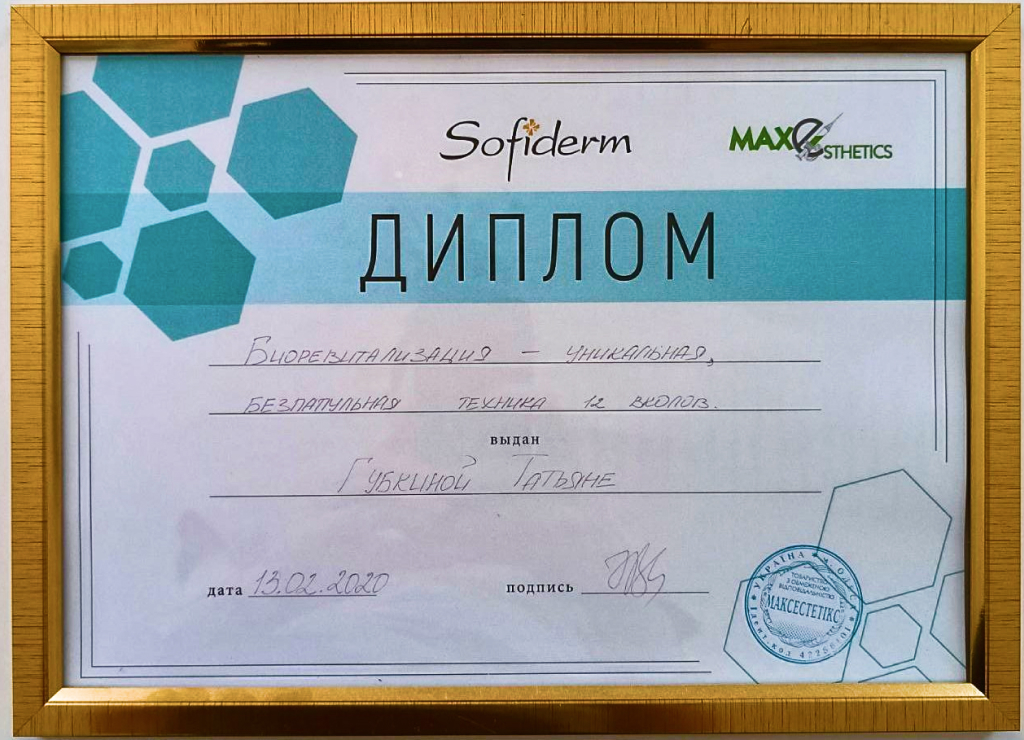 Sofiderm
MAX ESTHETICS
ДИПЛОМ
Биоревитализация – уникальная,
безпапульная техника 12 вколов.
выдан
Губкиной Татьяне
дата 13.02.2020
подпись
УКРАЇНА * м. ОДЕСА
ТОВАРИСТВО
З ОБМЕЖЕНОЮ
ВІДПОВІДАЛЬНІСТЮ
МАКСЕСТЕТІКС
Ідент. код